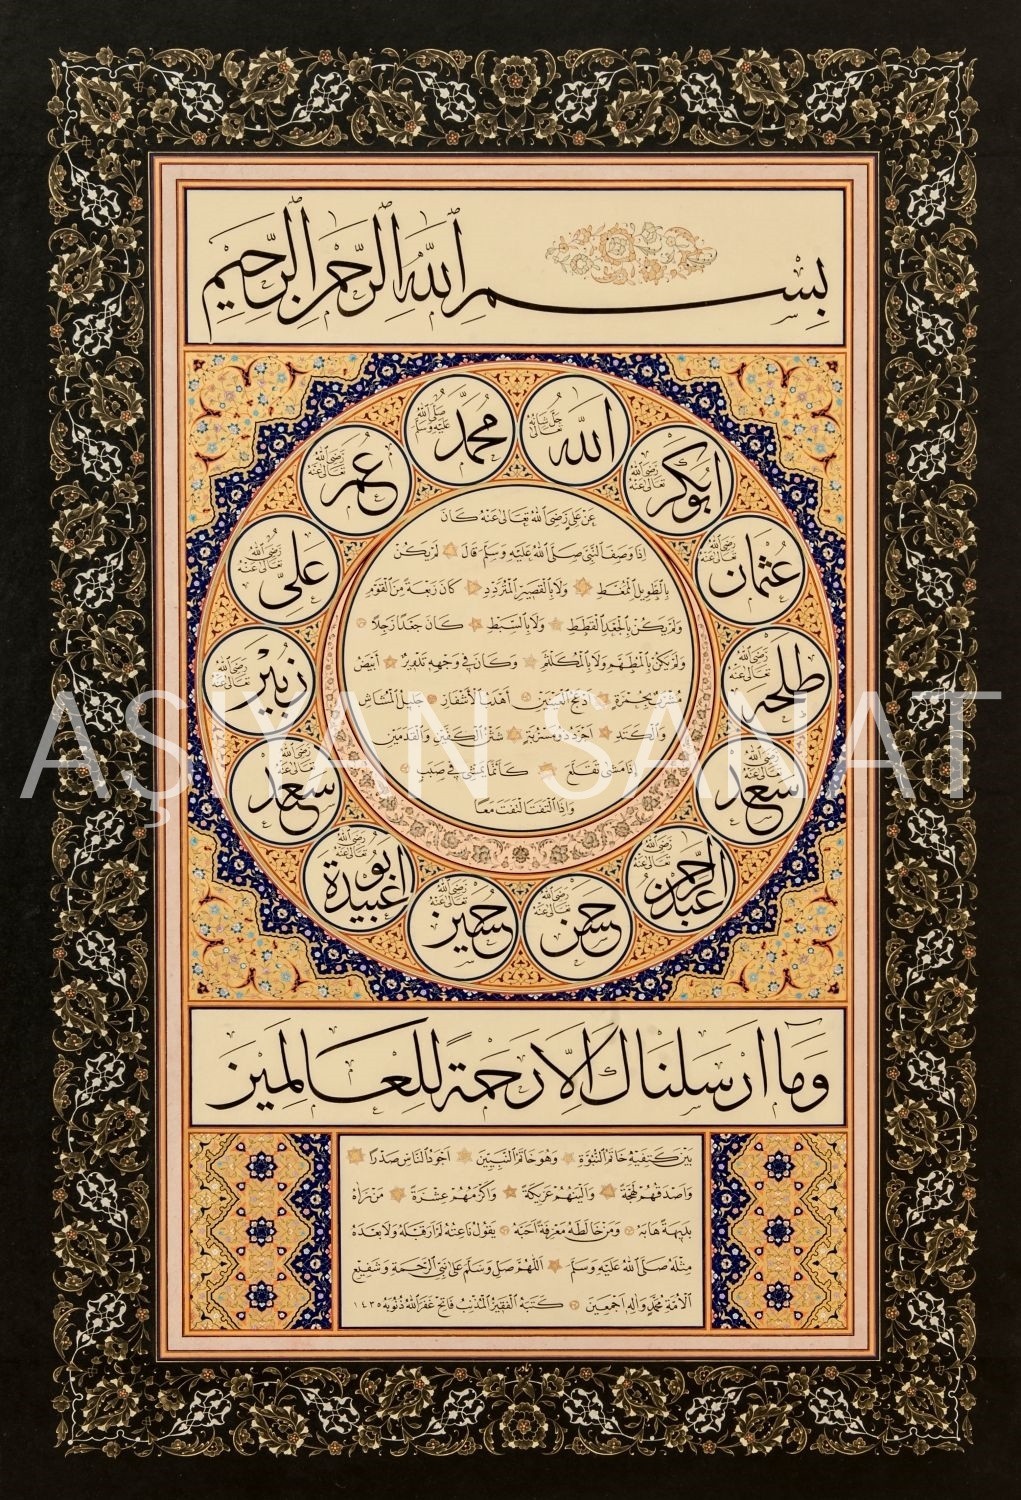 بِسْمِ اللَّهِ الرَّحْمٰنِ الرَّحِيمِ
اللّٰه جَلَّ شَأنُهُ تَعَالَى
مُحَمَّد صَلَّى اللّٰهُ عَلَيْهِ وَسَلَّمَ
ابُو بَكْر رَضِيَ اللّٰهُ تَعَالَى عَنْهُ
عُمَر رَضِيَ اللّٰهُ تَعَالَى عَنْهُ
عُثْمَان رَضِيَ اللّٰهُ تَعَالَى عَنْهُ
عَلِيّ رَضِيَ اللّٰهُ تَعَالَى عَنْهُ
طَلْحَه رَضِيَ اللّٰهُ تَعَالَى عَنْهُ
زُبَيْر رَضِيَ اللّٰهُ تَعَالَى عَنْهُ
سَعْد رَضِيَ اللّٰهُ تَعَالَى عَنْهُ
سَعِيد رَضِيَ اللّٰهُ تَعَالَى عَنْهُ
عَبْد الرَّحْمٰن رَضِيَ اللّٰهُ تَعَالَى عَنْهُ
ابُو عُبَيْدَة رَضِيَ اللّٰهُ تَعَالَى عَنْهُ
حَسَن رَضِيَ اللّٰهُ تَعَالَى عَنْهُ
حُسَيْن رَضِيَ اللّٰهُ تَعَالَى عَنْهُ
عَنْ عَلِيٍّ رَضِيَ اللّٰهُ تَعَالَى عَنْهُ كَانَ
اِذَا وَصَفَ النَّبِيَّ صَلَّى اللّٰهُ عَلَيْهِ وَسَلَّمَ قَالَ لَمْ يَكُنْ
بِالطَّوِيلِ الْمُمَّغِطِ وَلَا بِالْقَصِيرِ الْمُتَرَدِّدِ كَانَ رَبْعَةً مِنَ الْقَوْمِ
وَلَمْ يَكُنْ بِالْجَعْدِ الْقَطَطِ وَلَا بِالسَّبِطِ كَانَ جَعْدًا رَجِلًا
وَلَمْ يَكُنْ بِالْمُطَهَّمِ وَلَا بِالْمُكَلْثَمِ وَكَانَ فِي وَجْهِهِ تَدْوِيرٌ اَبْيَضُ
مُشْرَبٌ بِحُمْرَةٍ اَدْعَجُ الْعَيْنَيْنِ اَهْدَبُ الْاَشْفَارِ جَلِيلُ الْمُشَاشِ
وَالْكَتَدِ اَجْرَدُ ذُو مَسْرُبَةٍ شَثْنُ الْكَفَّيْنِ وَالْقَدَمَيْنِ
اِذَا مَشَى تَقَلَّعَ كَاَنَّمَا يَمْشِي فِي صَبَبٍ
وَاِذَا الْتَفَتَ الْتَفَتَ مَعًا
وَمَا اَرْسَلْنَاكَ اِلَّا رَحْمَةً لِلْعَالَمِينَ
بَيْنَ كَتِفَيْهِ خَاتَمُ النُّبُوَّةِ وَهُوَ خَاتَمُ النَّبِيِّينَ اَجْوَدُ النَّاسِ صَدْرًا
وَاَصْدَقُهُمْ لَهْجَةً وَاَلْيَنُهُمْ عَرِيكَةً وَاَكْرَمُهُمْ عِشْرَةً مَنْ رَاٰهُ
بَدِيهَةً هَابَهُ وَمَنْ خَالَطَهُ مَعْرِفَةً اَحَبَّهُ يَقُولُ نَاعِتُهُ لَمْ اَرَ قَبْلَهُ وَلَا بَعْدَهُ
مِثْلَهُ صَلَّى اللّٰهُ عَلَيْهِ وَسَلَّمَ اَللّٰهُمَّ صَلِّ وَسَلِّمْ عَلَى نَبِيِّ الرَّحْمَةِ وَشَفِيعِ
الْاُمَّةِ مُحَمَّدٍ وَاٰلِهِ اَجْمَعِينَ كَتَبَهُ الْفَقِيرُ الْمُذْنِبُ فَاتِح غَفَرَ اللّٰهُ ذُنُوبَهُ ١٤٣٥
AŞİYAN SANAT